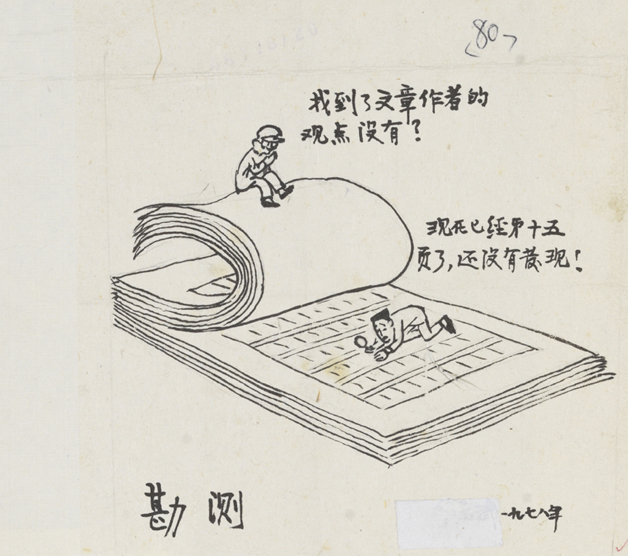 80
找到了文章作者的
观点没有？
现在已经第十五
页了,还没有发现！
勘测
一九七八年